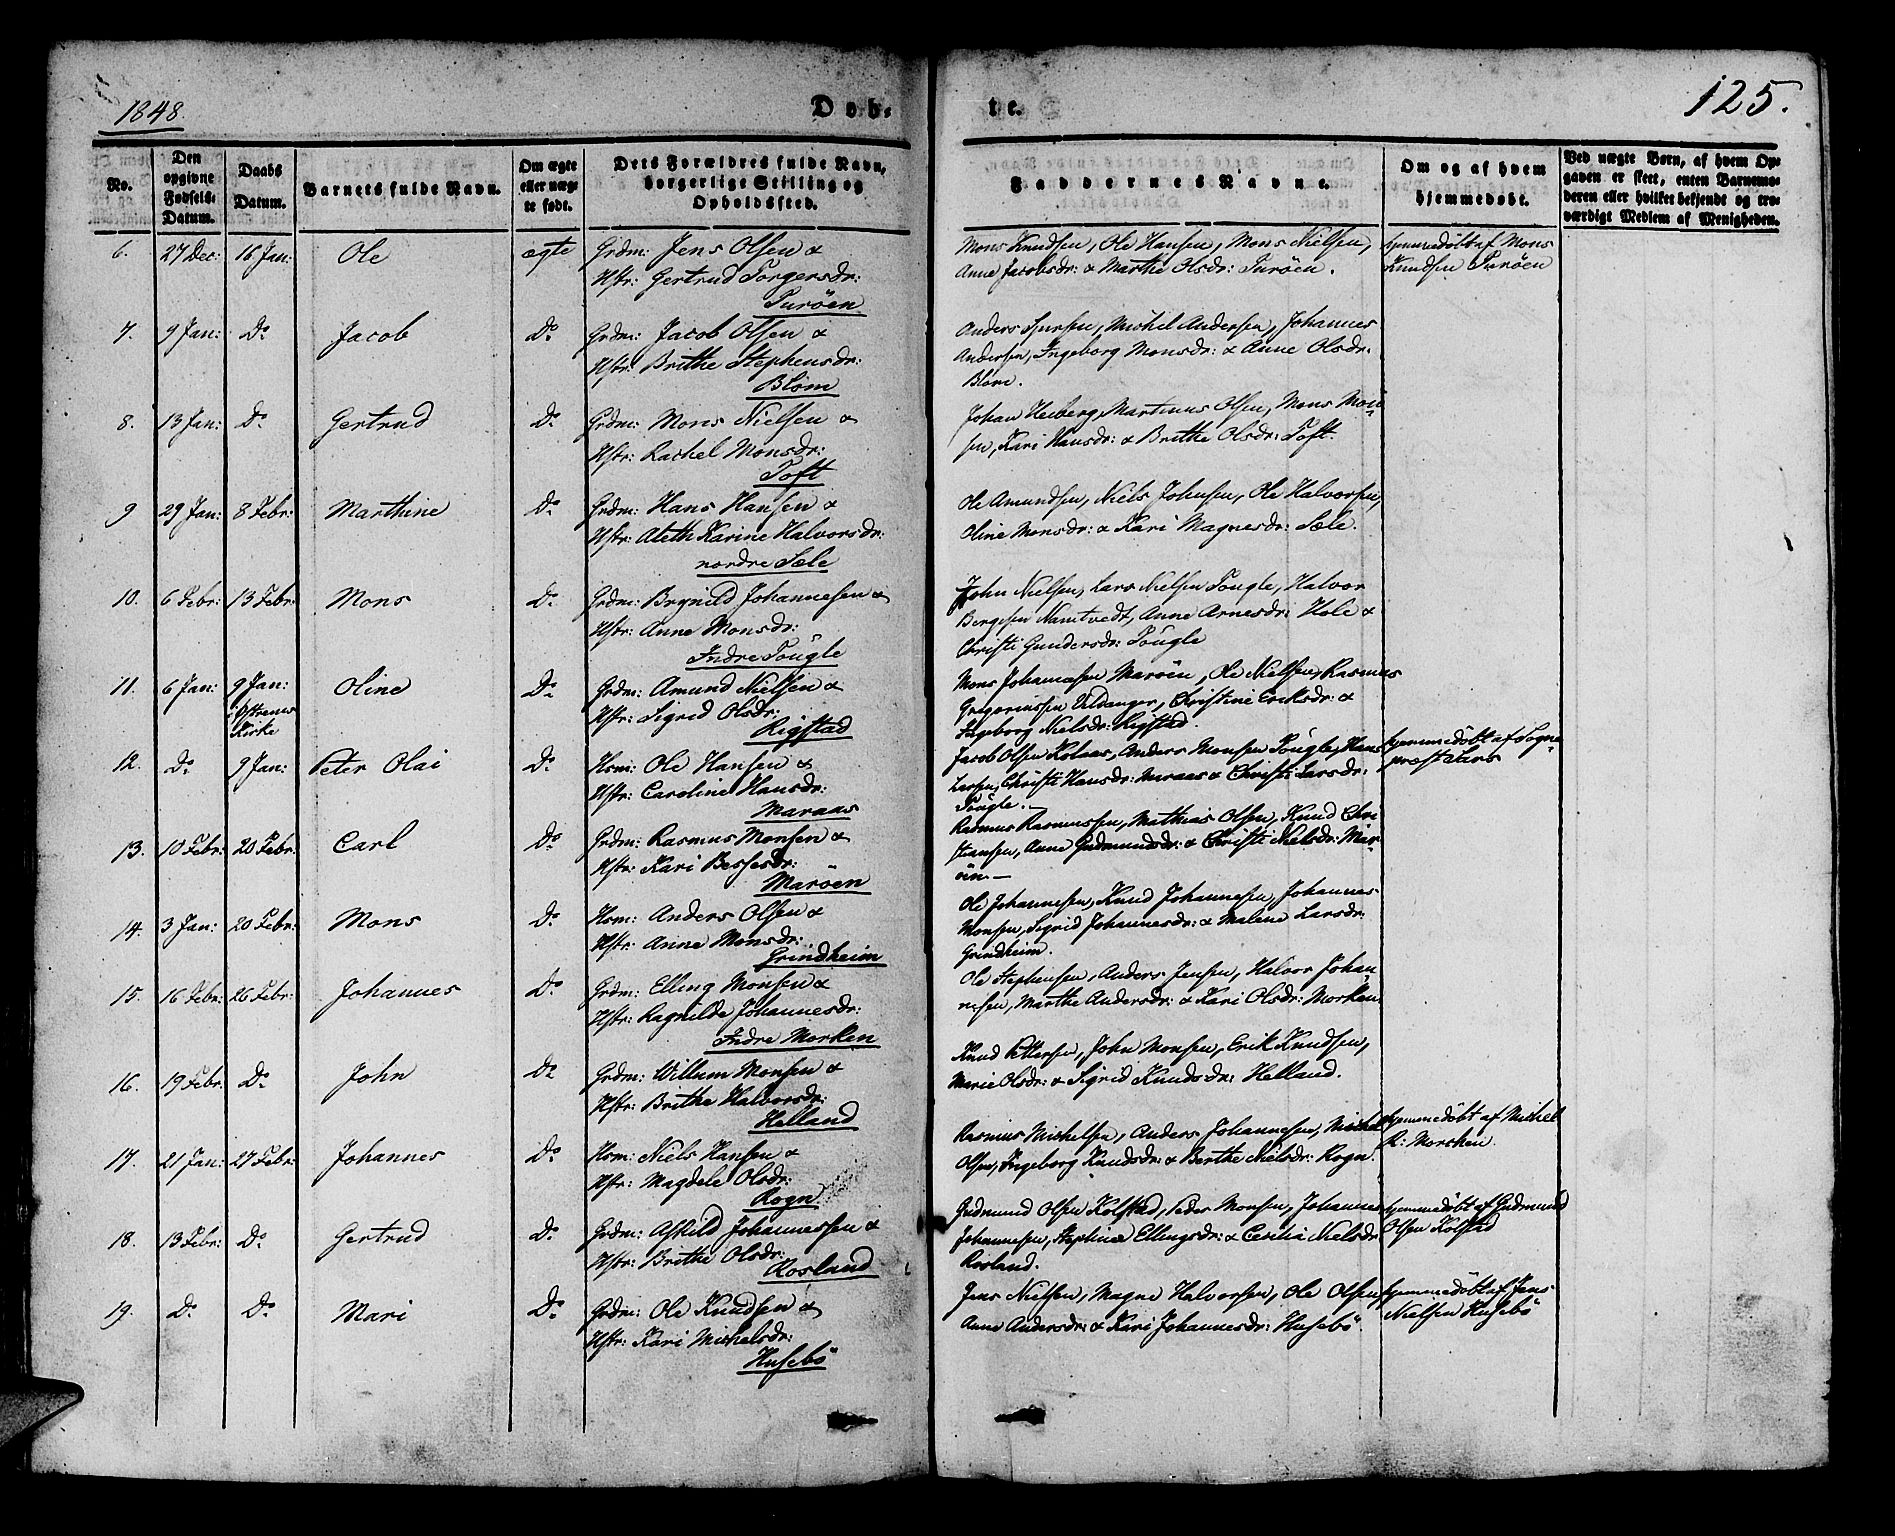 1848.
Døb-
te.
125.
No.
Den opgivne Fødsels-Datum.
Daabs Datum.
Barnets fulde Navn.
Om ægte eller uægte født.
Dets Forældres fulde Navn, borgerlige Stilling og Opholdssted.
Faddernes Navne.
Om og af hvem hjemmedøbt.
Ved uægte Børn, af hvem Opgaven er skeet, enten Barnemoderen eller hvilket bekjendt og troværdigt Medlem af Menigheden.
6. 27 Dec: 16 Jan: Ole ægte Grdm: Jens Olsen &
Hstr: Gertrud Torgersdr:
Turöen
Mons Knudsen, Ole Hansen, Mons Nielsen,
Anne Jacobsdr: & Marthe Olsdr: Turöen.
hjemmedöbt af Mons
Knudsen Turöen
7. 9 Jan: Do Jacob Do Grdm: Jacob Olsen &
Hstr: Brithe Stephensdr:
Blöm
Anders Michel Andersen, Johannes
Andersen, Ingeborg Monsdr: & Anne Olsdr:
8. 13 Jan: Do Gertrud Do Grdm: Mons Nielsen &
Hstr: Rachel Monsdr:
Toft
Johan Heiberg, Martinus Olsen, Mons Mon-
sen, Kari Hansdr: & Brithe Olsdr: Toft.
9 29 Jan: 8 Febr: Marthine Do Grdm: Hans Hansen &
Hstr: Aleth Karine Halvorsdr:
nordre Sæle
Ole Amundsen, Niels Johnsen, Ole Halvorsen,
Oline Monsdr: & Kari Magnesdr: Sæle.
10. 6 Febr: 13 Febr: Mons Do Grdm: Brynild Johannesen &
Hstr: Anne Monsdr:
Indre Tougle
John Nielsen, Lars Nielsen Tougle, Halvor
Bergesen Namtvedt, Anne Arnesdr: Hole &
Christi Gundersdr: Tougle
11. 6 Jan: 9 Jan: Oline Do Grdm: Amund Nielsen &
Kirke
Hstr: Sigrid Olsdr:
Rigstad
Mons Johannesen Maröen, Ole Nielsen, Rasmus
Gregoriussen Uldanger, Christine Eriksdr: &
Ingeborg Nielsdr: Rigstad.
12. Do 9 Jan: Peter Olai Do Hsm: Ole Hansen &
Hstr: Caroline Hansdr:
Maraas
Jacob Olsen Kolaas, Anders Monsen Tougle, Hans
Larsen, Christi Hansdr: Maraas & Christi Larsdr:
Tougle.
hjemmedöbt af Sogne-
prest
13. 10 Febr: 20 Febr: Carl Do Grdm: Rasmus Monsen &
Hstr: Kari Bessesdr:
Maröen
Rasmus Rasmussen, Mathias Olsen, Knud Chri-
stiansen, Anne Gudmundsdr: & Christi Nielsdr: Mar-
öen.
14. 3 Jan: 20 Febr: Mons Do Hsm: Anders Olsen &
Hstr: Anne Monsdr:
Grindheim
Ole Johannesen, Knud Johannesen, Johannes
Monsen, Sigrid Johannesdr: & Malene Larsdr:
Grindheim.
15. 16 Febr: 26 Febr: Johannes Do Grdm: Elling Monsen &
Hstr: Ragnilde Johannesdr:
Indre Morken
Ole Stephensen, Anders Jensen, Halvor Johan-
nesen, Marthe Andersdr: & Kari Olsdr: Morken
16. 19 Febr: Do John Do Grdm: Willum Monsen &
Hstr: Brithe Halvorsdr:
Helland
Knud Pettersen, John Monsen, Erik Knudsen,
Marie Olsdr: & Sigrid Knudsdr: Helland.
17. 21 Jan: 27 Febr: Johannes Do Hsm: Niels Hansen &
Hstr: Magdele Olsdr:
Rogn
Rasmus Michelsen, Anders Johannesen, Michel
Olsen, Ingeborg Knudsdr: & Berthe Nielsdr: Rogn.
hjemmedöbt af Michel
R: Morchen
18. 13 Febr: Do Gertrud Do Grdm: Askild Johannessen &
Hstr: Brithe Olsdr:
Rosland
Gudmund Olsen Kolstad, Peder Monsen, Johannes
Johannesen, Stephine Ellingsdr: & Cecilia Nielsdr:
Rosland.
hjemmedöbt af Gudmund
Olsen Kolstad
19. Do Do Mari Do Grdm: Ole Knudsen &
Hstr: Kari Michelsdr:
Husebö
Jens Nielsen, Magne Halvorsen, Ole Olsen,
Anne Andersdr: & Kari Johannesdr: Husebö.
hjemmedöbt af Jens
Nielsen Husebö